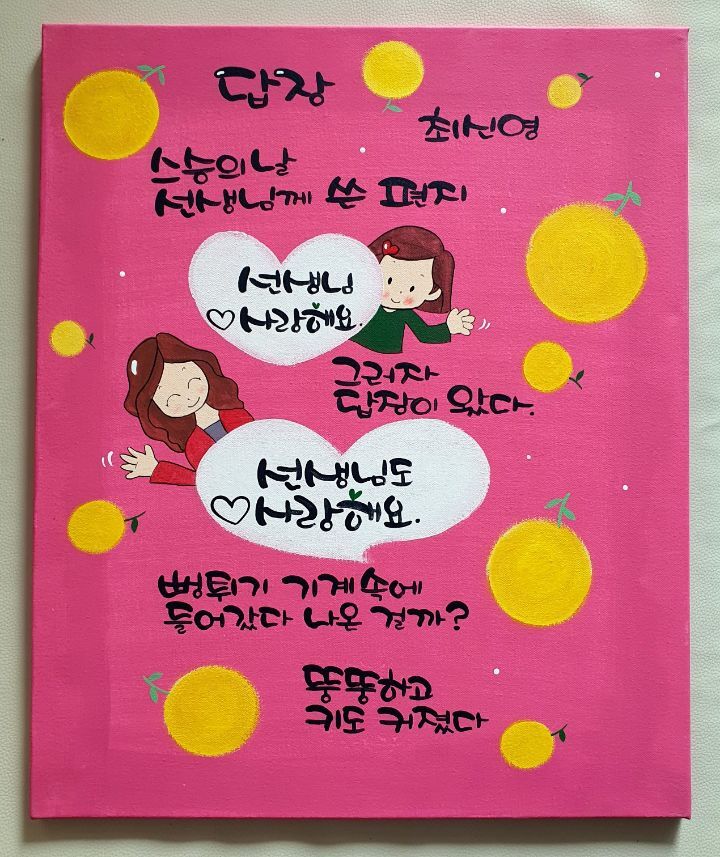 답장
최신영
스승의 날
선생님께 쓴 편지
선생님
♡사랑해요.
그러자
답장이 왔다.
선생님도
♡사랑해요.
뻥튀기 기계 속에
들어갔다 나온 걸까?
뚱뚱하고
키도 커졌다